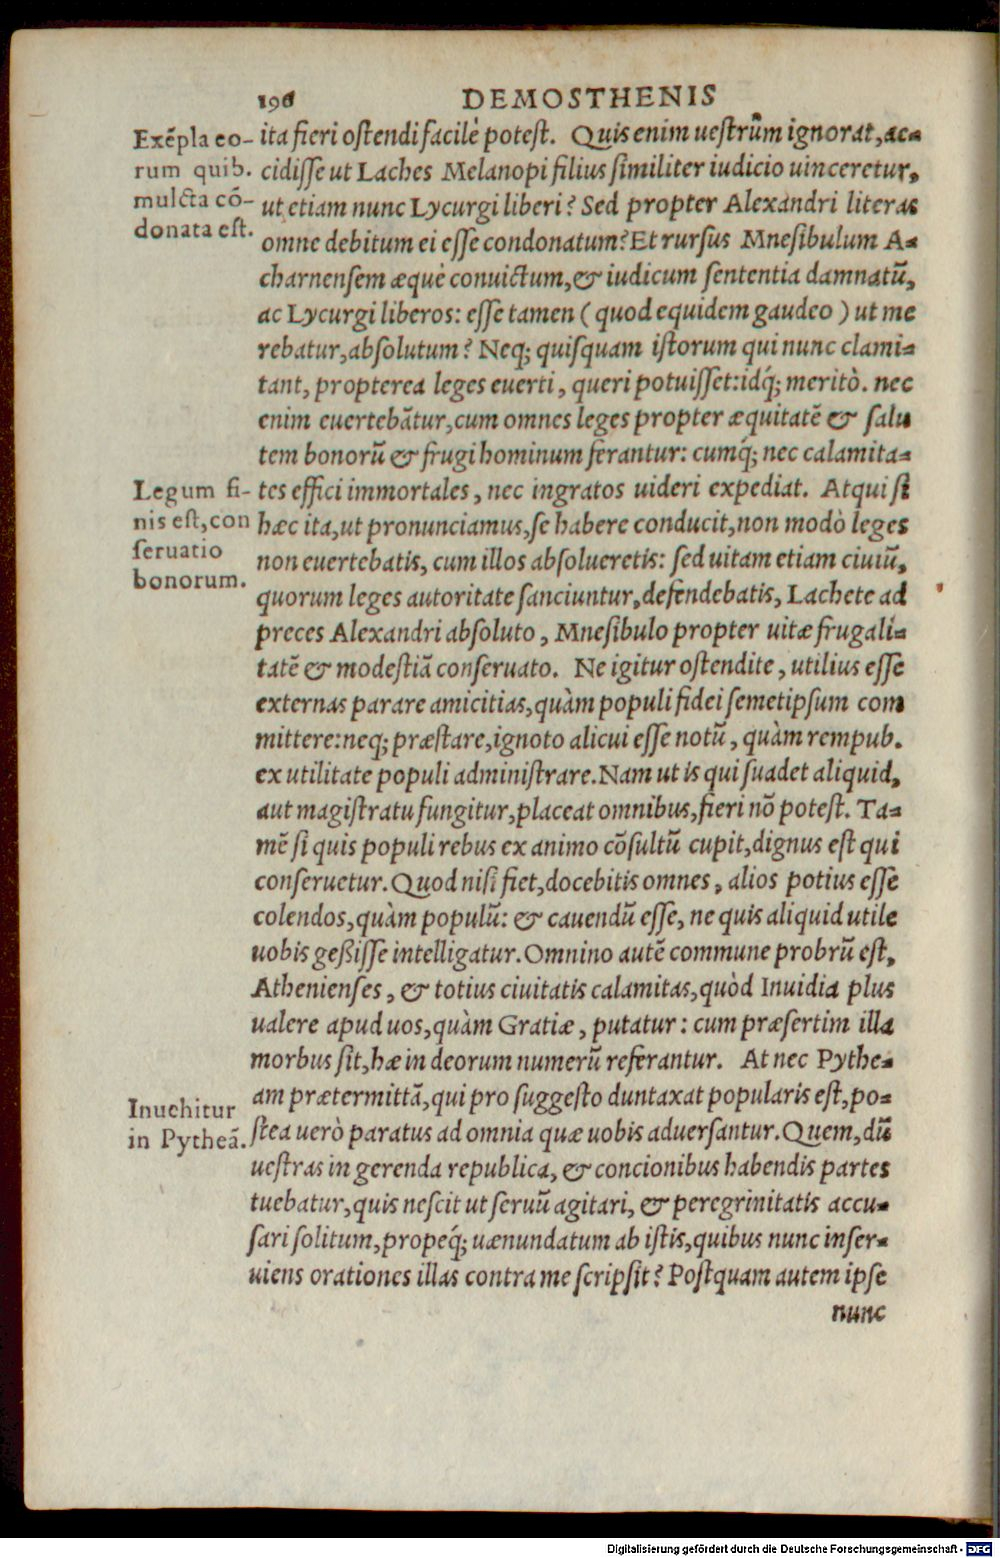 196 DEMOSTHENIS
Exẽpla eo-
rum quib.
mulcta cõ-
donata est.
ita fieri ostendi facilè potest. Quis enim uestrûm ignorat, ac-
cidisse ut Laches Melanopi filius similiter iudicio uinceretur,
ut etiam nunc Lycurgi liberi? Sed propter Alexandri literas
omne debitum ei esse condonatum? Et rursus Mnesibulum A-
charnensem æquè conuictum, & iudicum sententia damnatũ,
ac Lycurgi liberos: esse tamen (quod equidem gaudeo) ut me
rebatur, absolutum? Neq; quisquam istorum qui nunc clami-
tant, propterea leges euerti, queri potuisset: idq́; meritò. nec
enim euertebãtur, cum omnes leges propter æquitatẽ & salu
tem bonorũ & frugi hominum ferantur: cumq́; nec calamita-
Legum fi-
nis est, con
seruatio
bonorum.
tes effici immortales, nec ingratos uideri expediat. Atqui si
hæc ita, ut pronunciamus, se habere conducit, non modò leges
non euertebatis, cum illos absolueretis: sed uitam etiam ciuiũ,
quorum leges autoritate sanciuntur, defendebatis, Lachete ad
preces Alexandri absoluto, Mnesibulo propter uitæ frugali-
tatẽ & modestiã conseruato. Ne igitur ostendite, utilius esse
externas parare amicitias, quàm populi fidei semetipsum com
mittere: neq; præstare, ignoto alicui esse notũ, quàm rempub.
ex utilitate populi administrare. Nam ut is qui suadet aliquid,
aut magistratu fungitur, placeat omnibus, fieri nõ potest. Ta-
mẽ si quis populi rebus ex animo cõsultũ cupit, dignus est qui
conseruetur. Quod nisi fiet, docebitis omnes, alios potius esse
colendos, quàm populũ: & cauendũ esse, ne quis aliquid utile
uobis geßisse intelligatur. Omnino autẽ commune probrũ est,
Athenienses, & totius ciuitatis calamitas, quòd Inuidia plus
ualere apud uos, quàm Gratiæ, putatur: cum præsertim illa
morbus sit, hæ in deorum numerũ referantur. At nec Pythe-
Inuehitur
in Pytheã.
am prætermittã, qui pro suggesto duntaxat popularis est, po-
stea uerò paratus ad omnia quæ uobis aduersantur. Quem, dũ
uestras in gerenda republica, & concionibus habendis partes
tuebatur, quis nescit ut seruũ agitari, & peregrinitatis accu-
sari solitum, propeq́; uænundatum ab istis, quibus nunc inser-
uiens orationes illas contra me scripsit? Postquam autem ipse
nunc
Digitalisierung gefördert durch die Deutsche Forschungsgemeinschaft - DFG